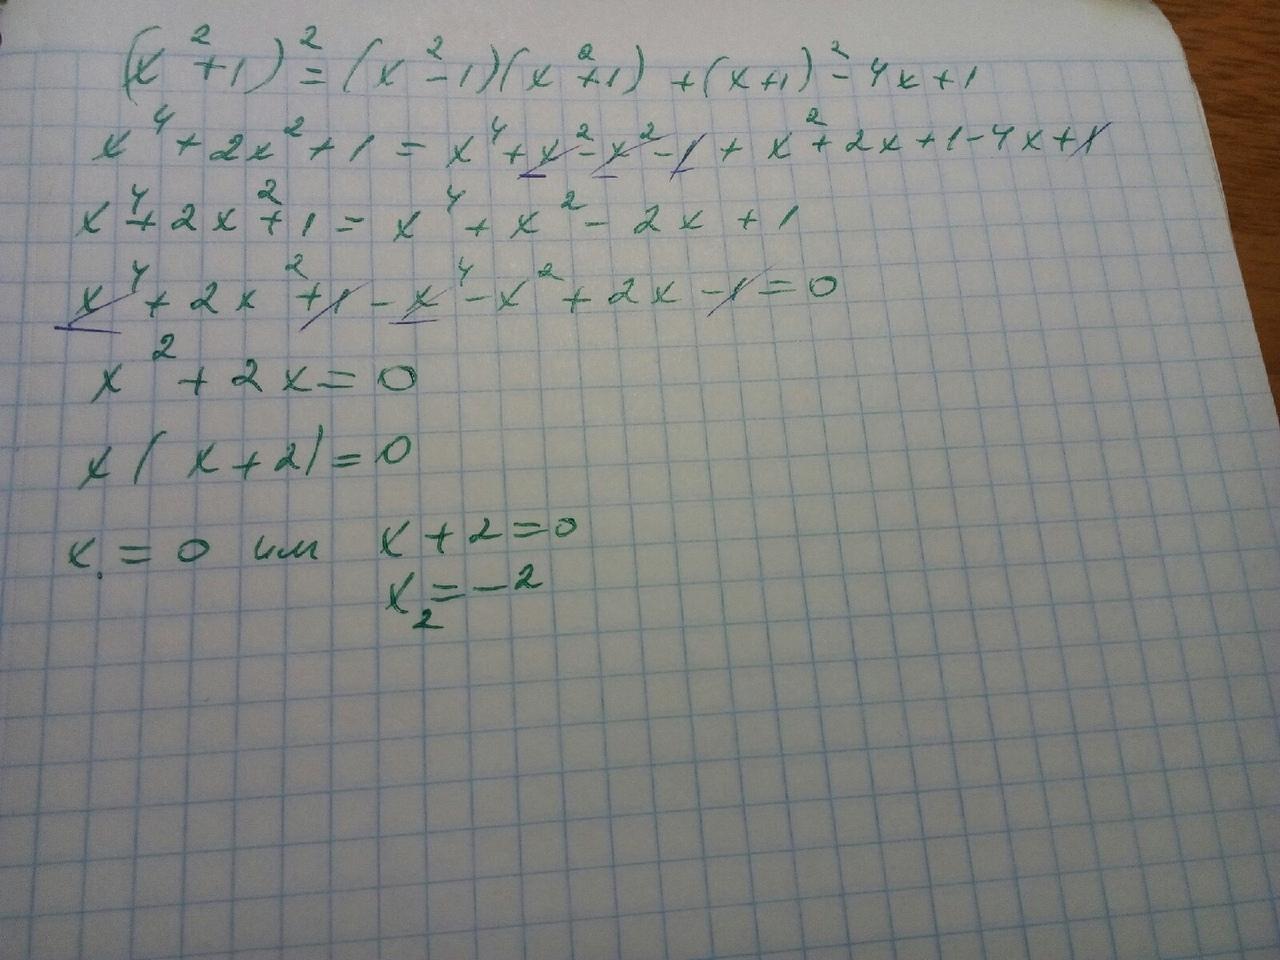 (x²+1)² = (x²-1)(x²+1) + (x+1)² - 4x+1
x⁴ + 2x² + 1 = x⁴ + x² - x² - 1 + x² + 2x + 1 - 4x + 1
x⁴ + 2x² + 1 = x⁴ + x² - 2x + 1
x⁴ + 2x² + 1 - x⁴ - x² + 2x - 1 = 0
x² + 2x = 0
x ( x + 2) = 0
x₁ = 0 или x + 2 = 0
x₂ = -2